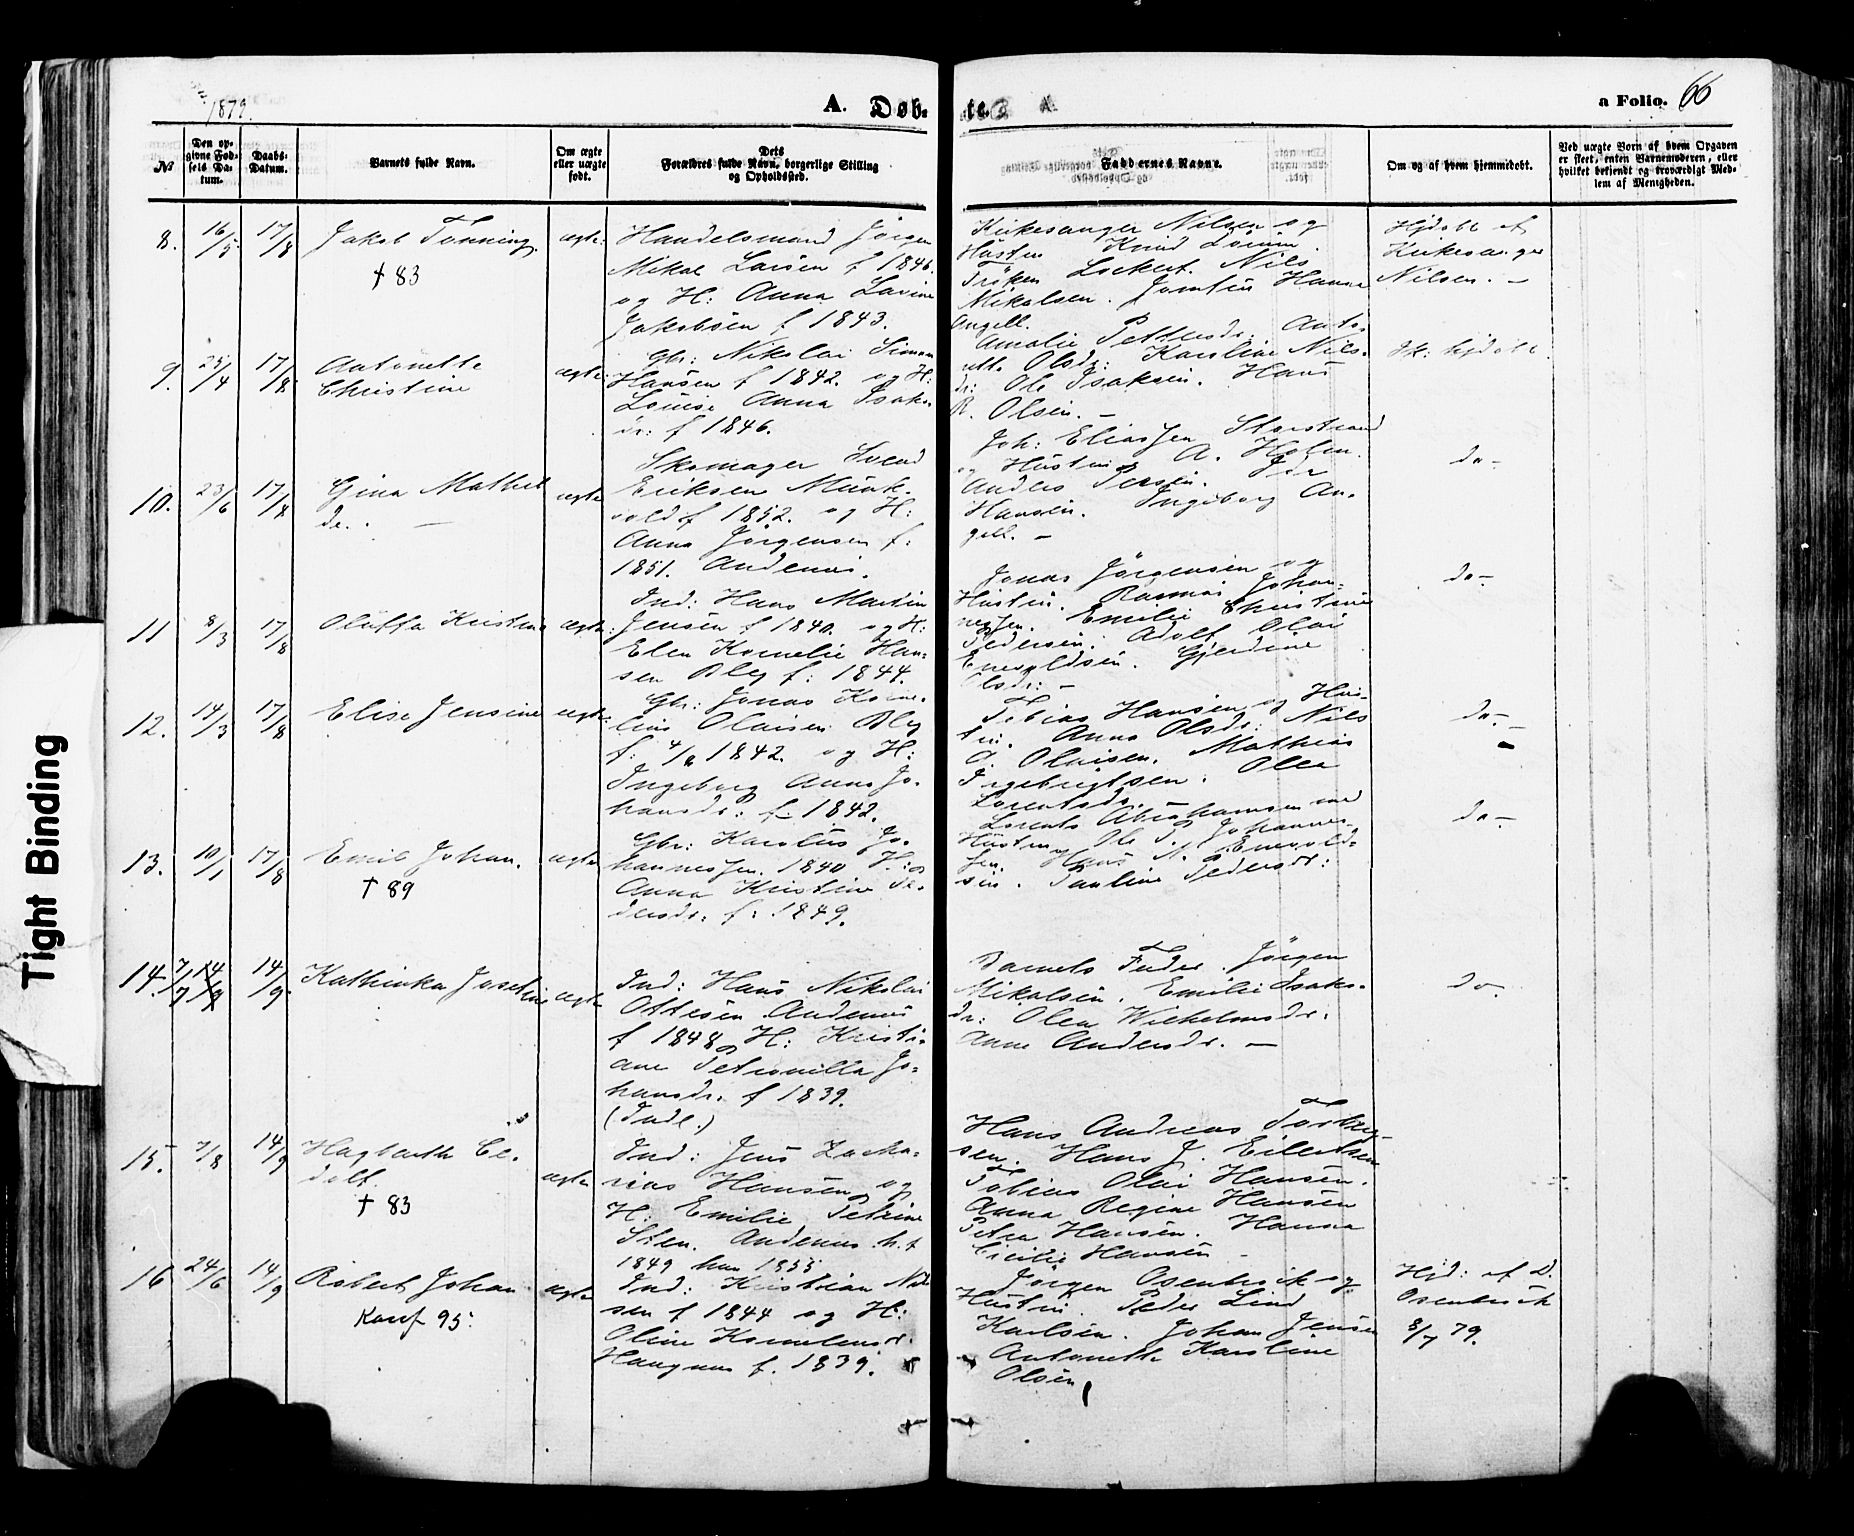 1879.
A. Døb-
te.
A.
a Folio. 66
№
Den op-
givne Fød-
sels Da-
tum.
Daabs-
Datum.
Barnets fulde Navn.
Om ægte
eller uægte
født.
Dets
Forældres fulde Navn, borgerlige Stilling
og Opholdssted.
Faddernes Navne.
Om og af hvem hjemmedøbt.
Ved uægte Børn af hvem Opgaven
er skeet, enten Barnemoderen, eller
hvilket bekjendt og troværdigt Med-
lem af Menigheden.
8. 16/5 17/8 Jakob Tønning.
† 83
ægte.
Handelsmand Jørgen
Mikal Larsen f 1846.
og H: Anna Lavine
Jakobsen f 1843.
Kirkesanger Nilsen og
Hustru Knud
Frøken Lockert. Nils
Mikalsen. Jomfru Hanna
Angell.
Hjdøbt af
Kirkesanger
Nilsen. -
9. 25/4 17/8 Antonette
Christine
ægte.
Gbr: Nikolai Simon
Hansen f 1842. og H:
Lovise Anna Isaks
dr: f 1846.
Amalie Pettersdr. Anto
nette Olsdr: Karoline Nils-
dr: Ole Isaksen. Hans
R. Olsen. -
Ik: hjdøbt
10. 23/6 17/8 Gina Mathil
de. -
ægte
Skomager Svend
Eriksen Munk-
vold f 1852. og H:
Anna Jørgensen f:
1851. Andenæs.
Joh: Eliassen Storstrand
og Hustru A. Holm.
Anders Persen.
Hansen. Ingeborg An-
gell. -
do-
11 8/3 17/8 Oluffa Kristine ægte:
Ind: Hans Martin
Jensen f 1840. og H:
Elen Kornelie Han-
sen Bley f: 1844.
Jonas Jørgensen og
Hustru. Rasmus Johan-
nessen. Emilie Christine
Pedersen. Adolf Olai
Enevoldsen. Gjerdine
Olsdr: -
do-
12. 14/3 17/8 Elise Jensine ægte.
Gbr: Jonas Korne-
lius Olaisen Bley
f: 1842. og H:
Ingeborg Anna Jo-
hansdr: f: 1842.
Tobias Hansen og Hus-
tru. Anna Olsdr. Nils
O. Olaisen. Mathias
Ingebrigtsen. Olea
Lorentsdr.
do-
13. 10/1 17/8 Emil Johan.
† 89
ægte
Gbr: Karolus Jo-
hannessen. 1840 H: og
Anna Kristine Pe-
dersdr: f: 1849.
Lorents Abrahamsen med
Hustru Ole P. Johannes-
sen. Hans N. Enevold-
sen. Pauline Pedersdr:
do-
14. 7/7 14/9 14/9. Kathinka Josefine ægte
Ind: Hans Nikolai
Ottesen Andenæs
f 1848 og H: Kristi-
ane Petronilla Jo-
hansdr. f 1839.
(Indl.)
Barnets Fader. Jørgen
Mikalsen. Emilie Isaks-
dr: Olea Wilhelmsdr.
Anne Andersdr. -
do.
15. 7/8 14/9 Hagbarth
† 83
ægte
Ind: Jens Zacha-
rias Hansen og
H: Emilie Petrine
Sten. Andenæs. h. f
1849 hun 1855
Hans Andreas
sen. Hans J. Eilertsen
Tobias Olai Hansen.
Anna Regine Hansen
Petra Hansen. Hanna
Cicilie Hansen -
16 24/6 14/9 Robert Johan
Konf 95.
ægte
Ind: Kristian Nil
sen f 1844 og H:
Oline
f. 1839.
Jørgen Osenbrock og
Hustru. Peder Lind
Karlsen. Johan Jensen
Antonette Karoline
Olsen
Hjd: af D.
Osenbrock
8/7 79.
Tight Binding